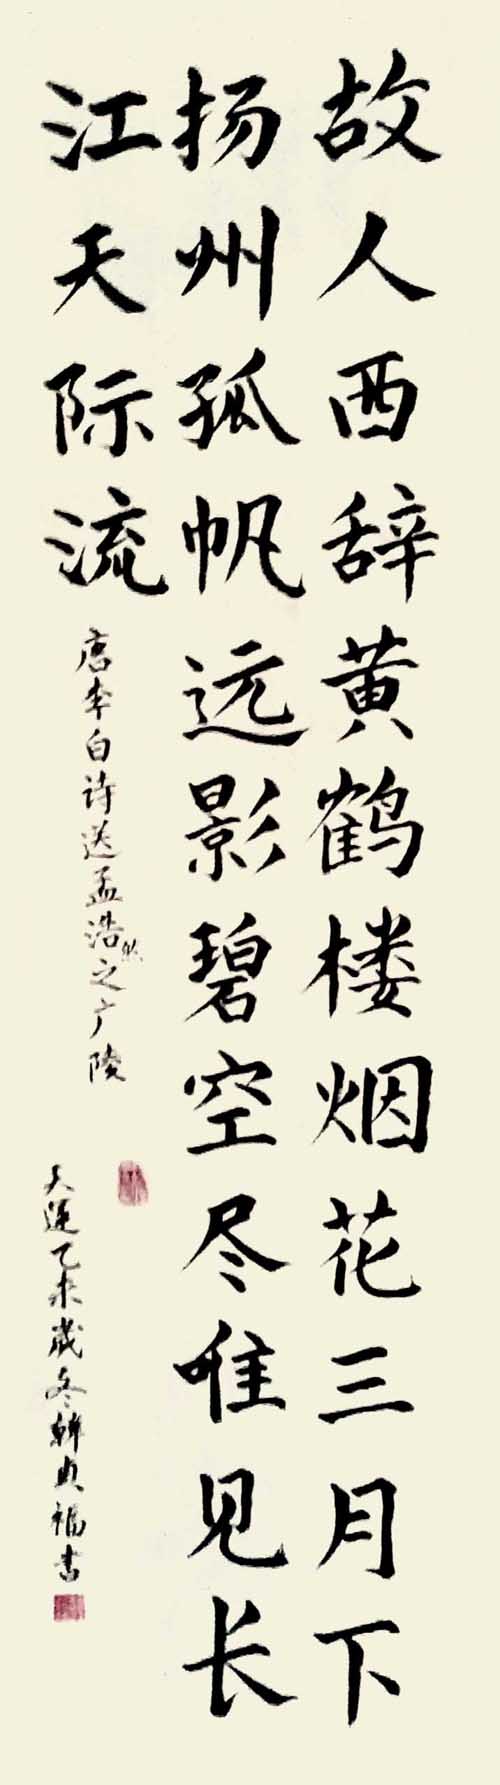 故人西辞黄鹤楼烟花三月下
扬州孤帆远影碧空尽唯见长
江天际流
唐李白诗送孟浩然之广陵
天运乙未岁冬韩贞福书